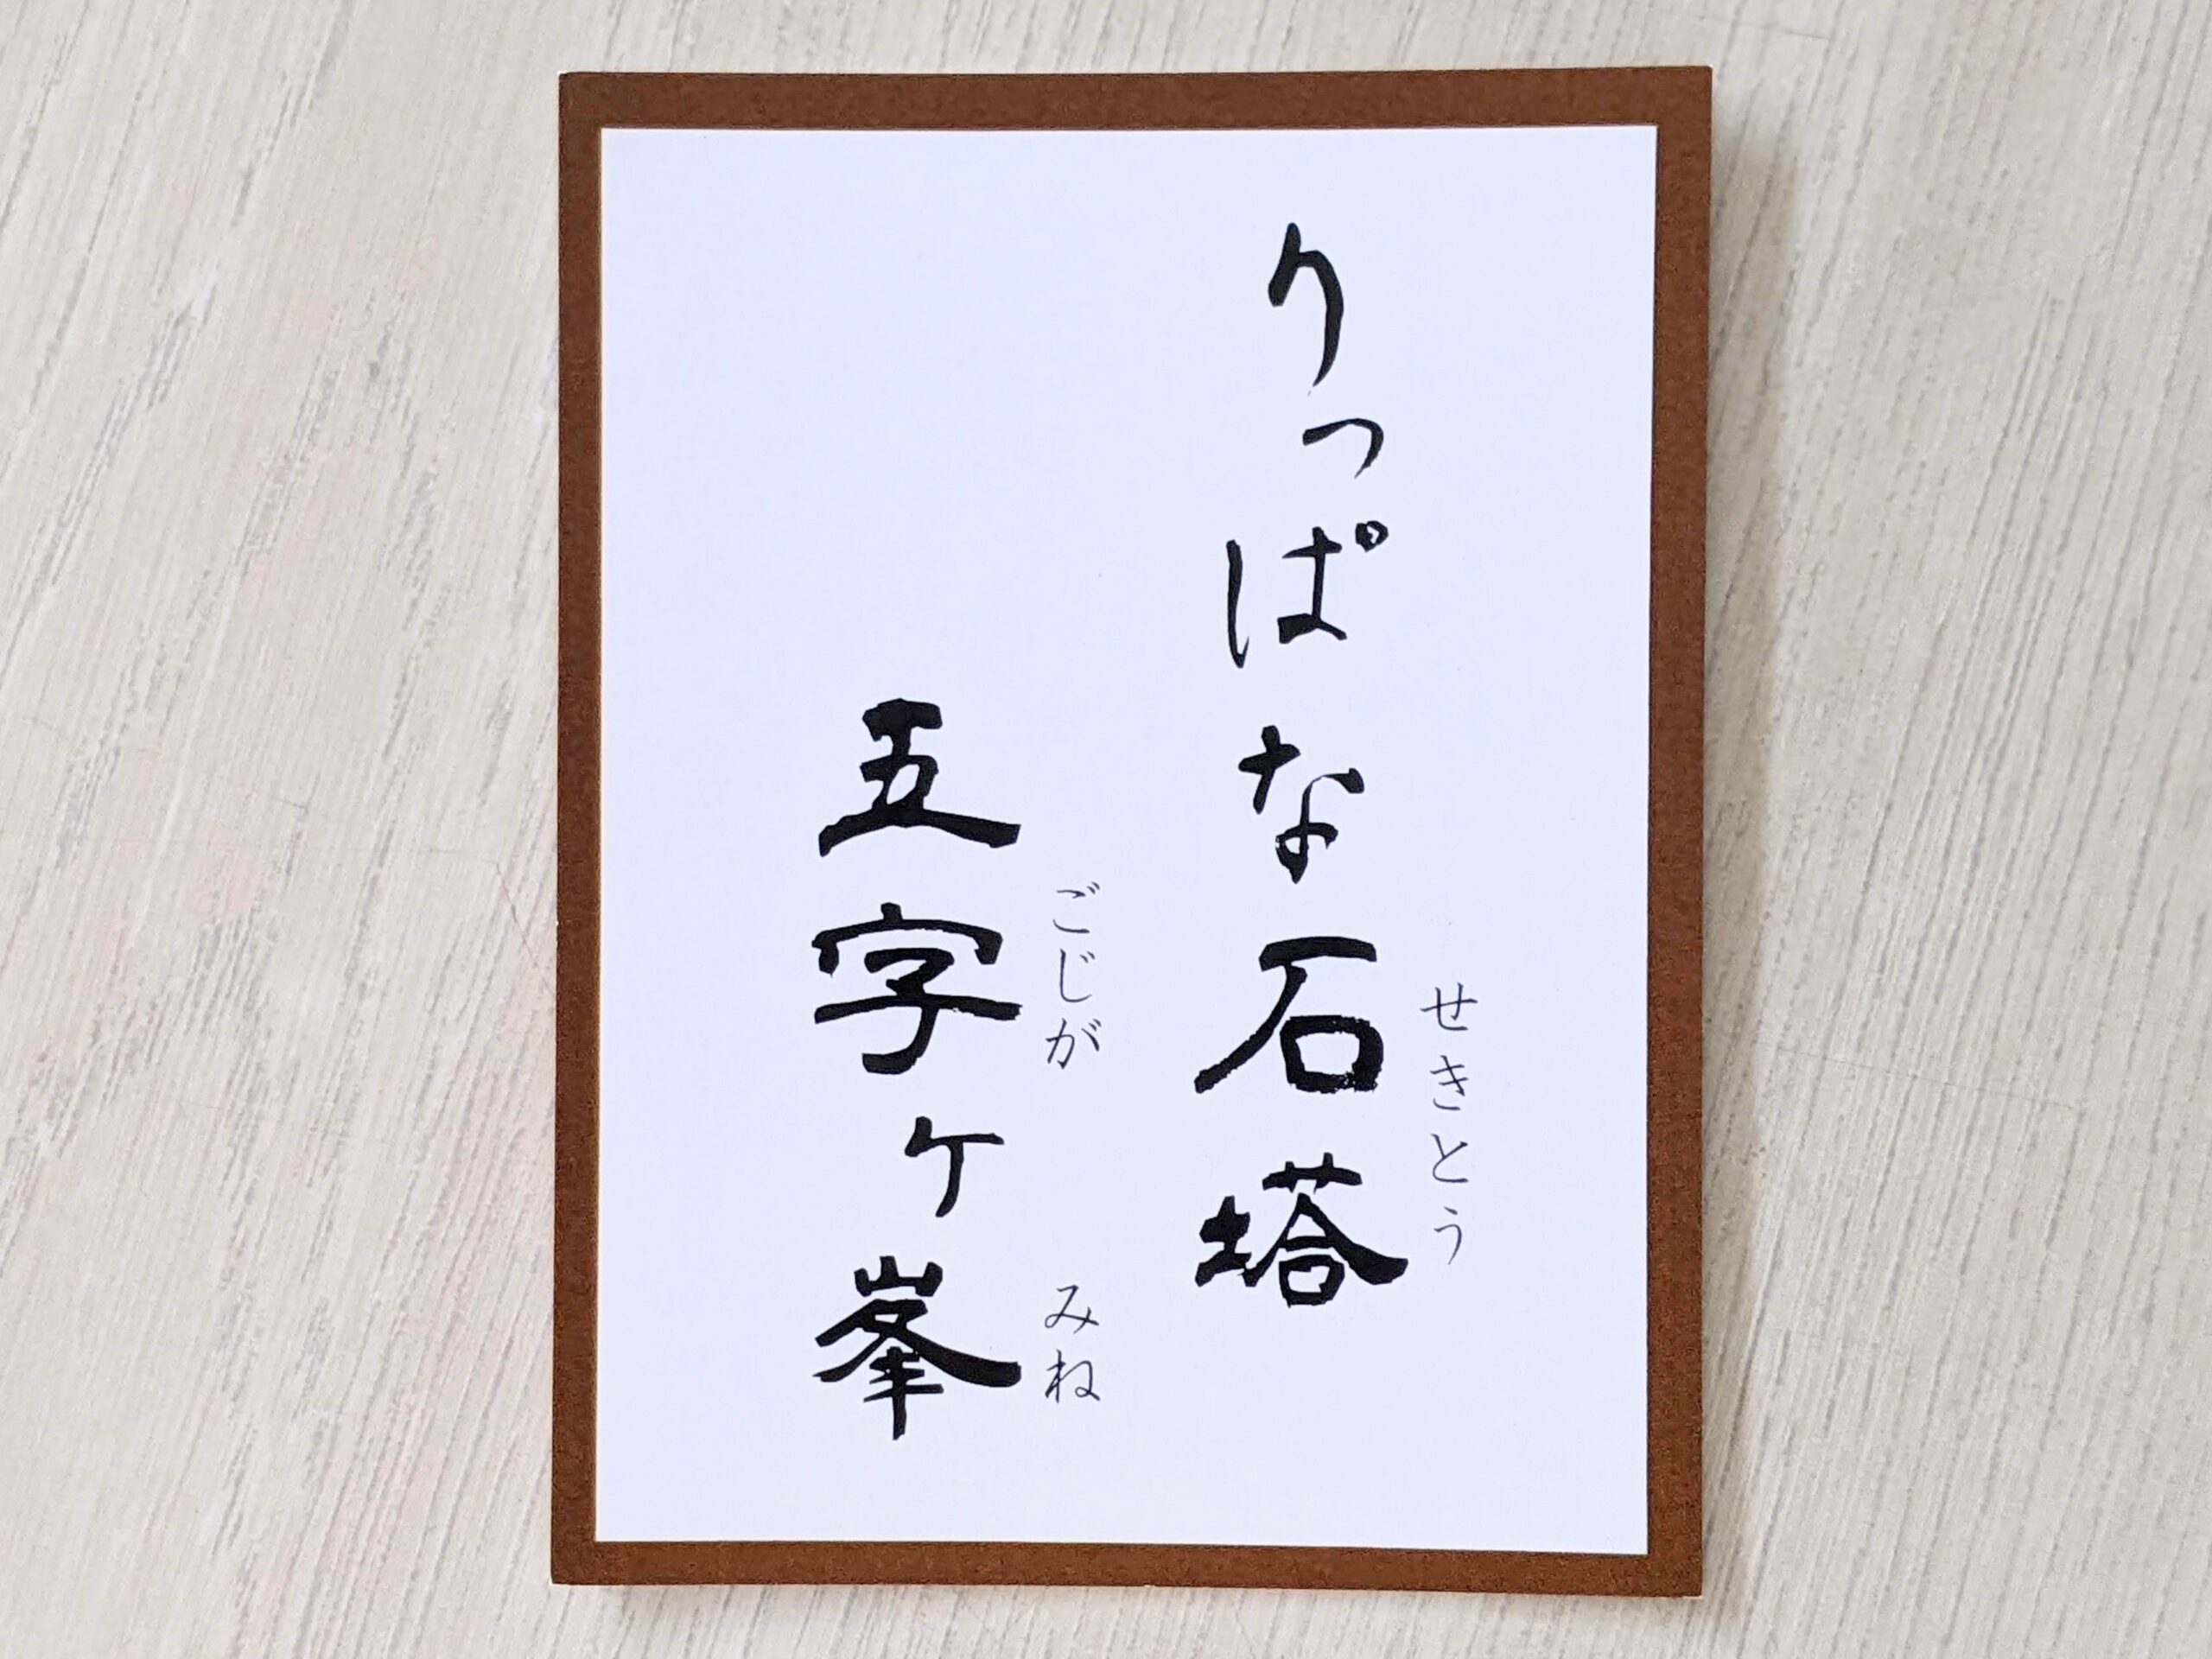 りっぱな石塔
せきとう
五字ケ峯
ごじが みね